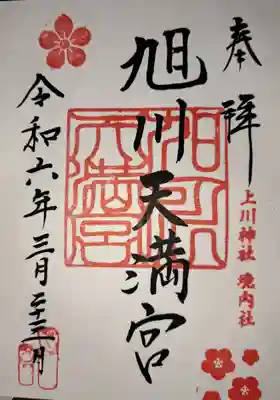 奉拝
上川神社 境内社
旭川天満宮
令和六年三月二十三日